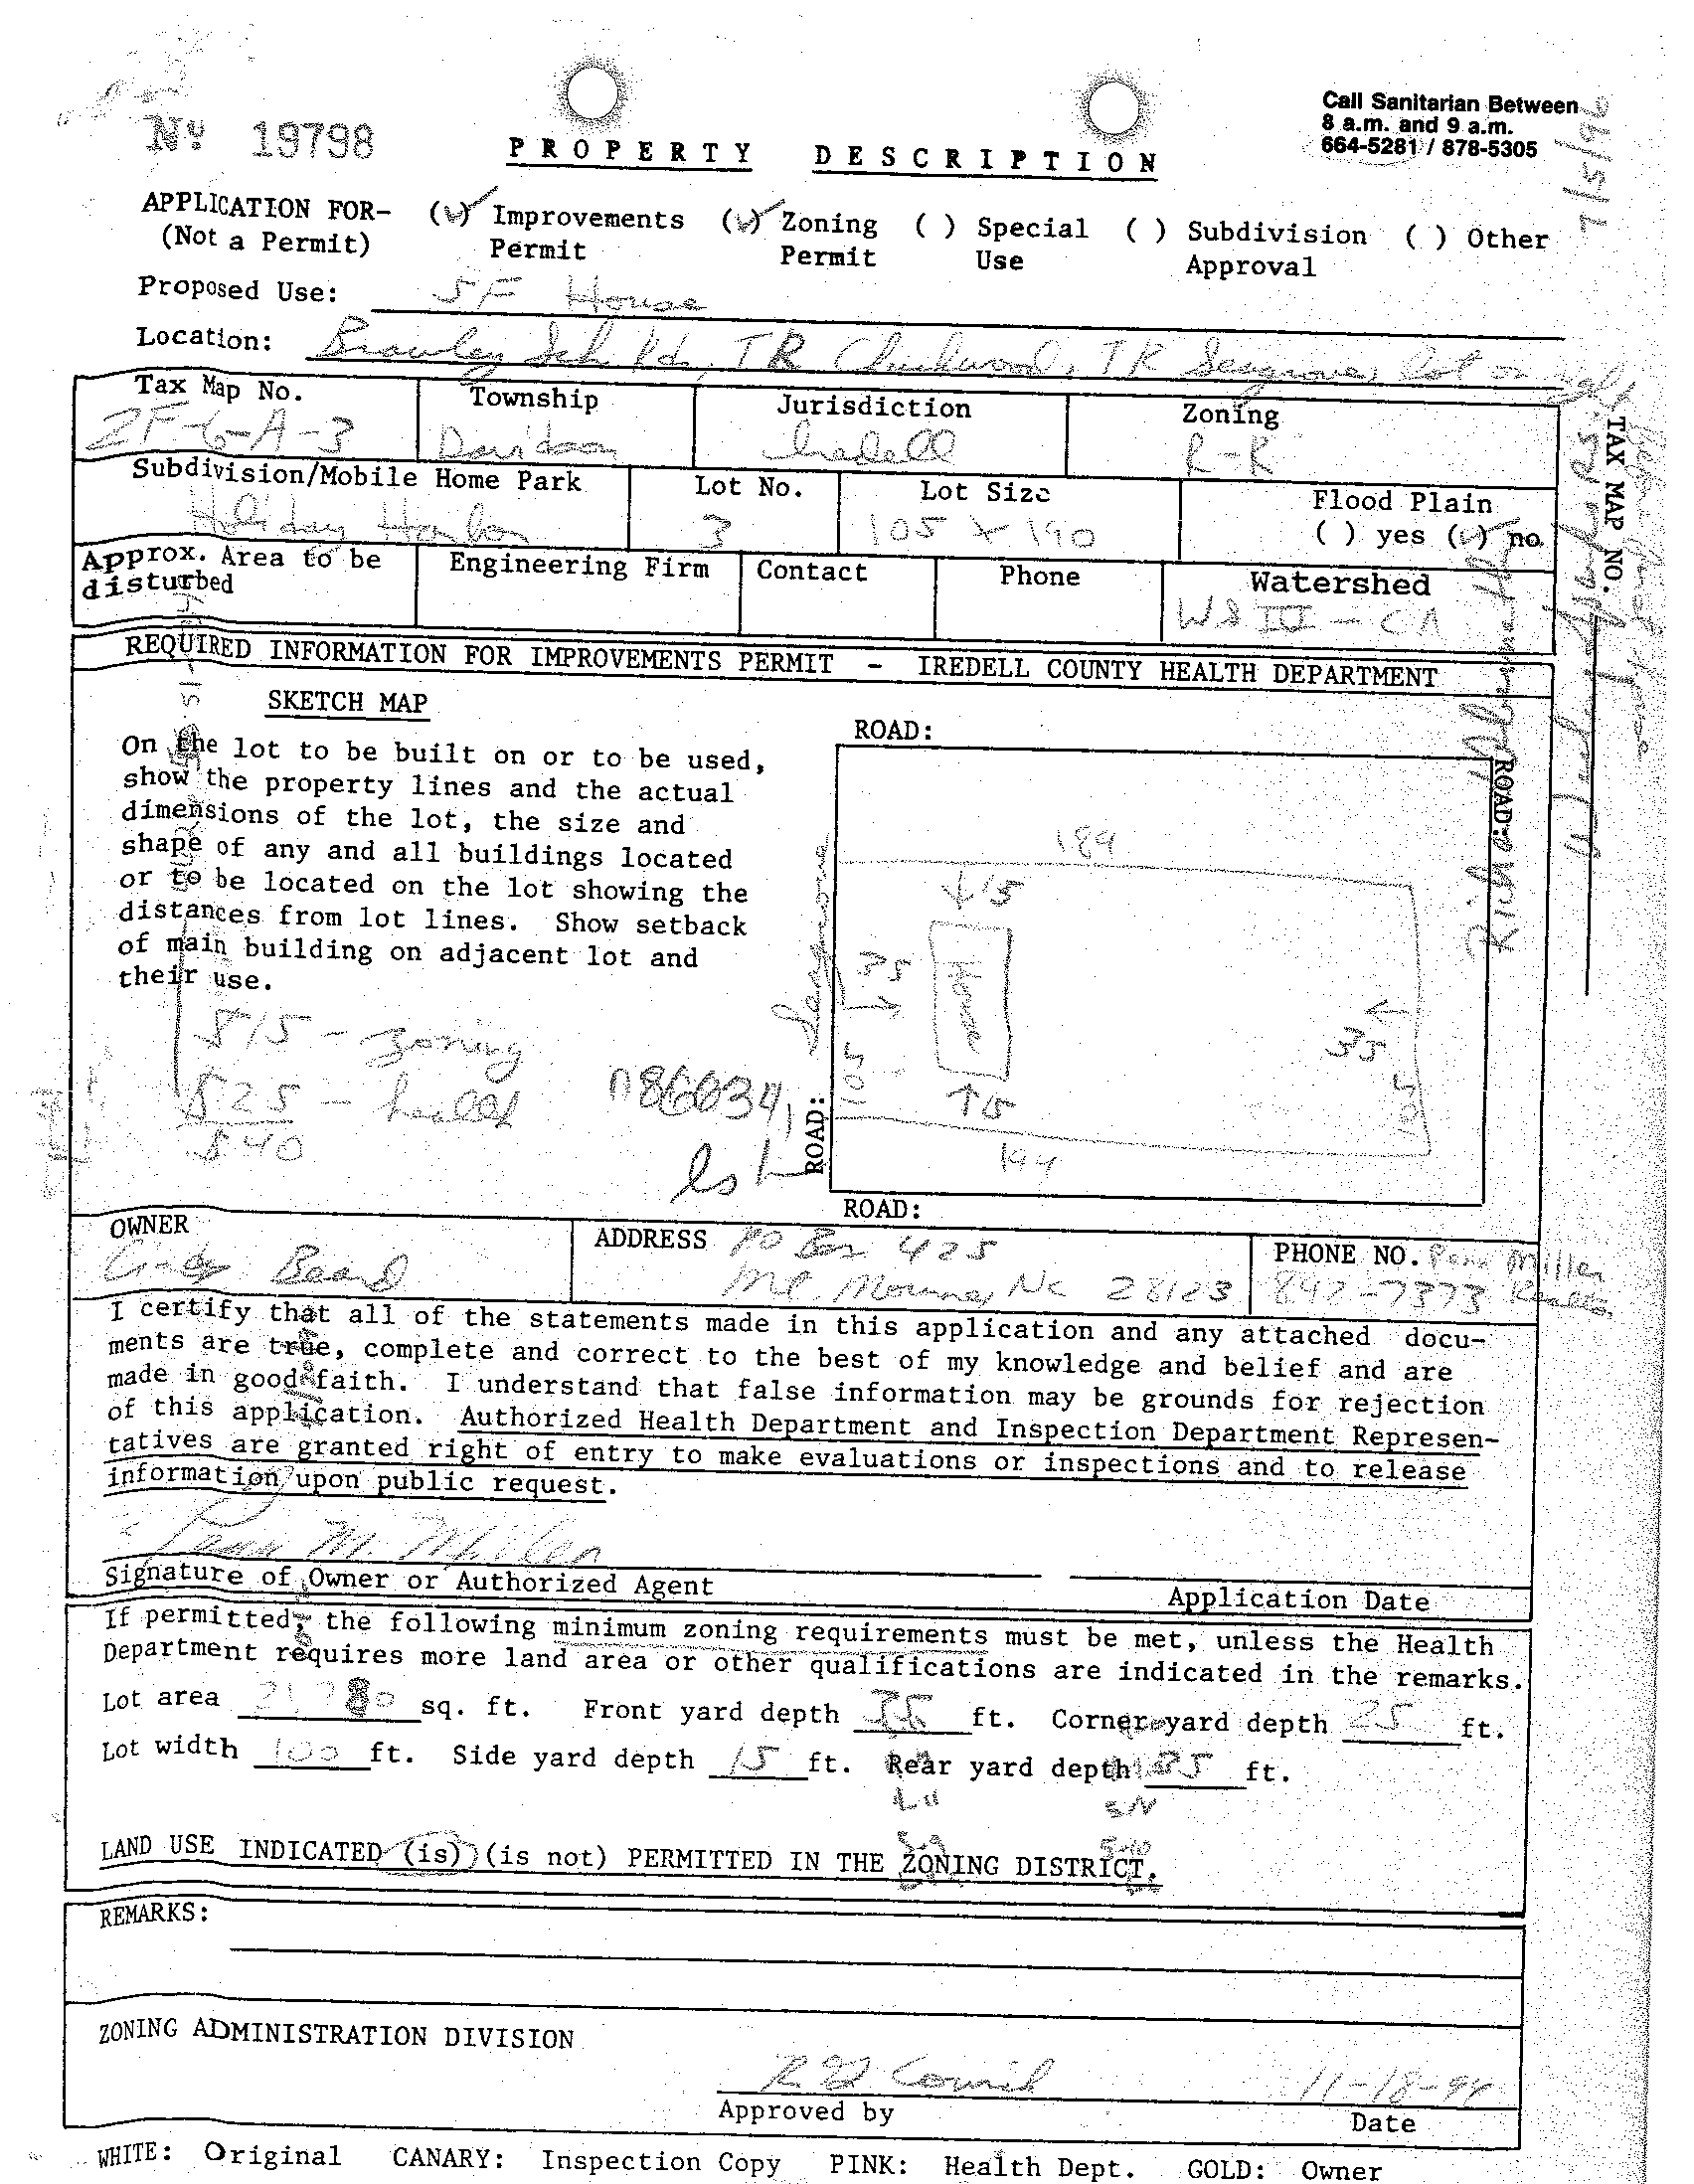 Nº 19798
PROPERTY DESCRIPTION
Call Sanitarian Between
8 a.m. and 9 a.m.
664-5281 / 878-5305
7/5/96
APPLICATION FOR- (✓) Improvements (✓) Zoning ( ) Special ( ) Subdivision ( ) Other
(Not a Permit) Permit Permit Use Approval
Proposed Use: SF House
Location: Brawley Sch Rd, TR Chuckwood, TR Seagrove, lot on right
Tax Map No. Township Jurisdiction Zoning
2F-6-A-3 Davidson Iredell R-R
Subdivision/Mobile Home Park Lot No. Lot Size Flood Plain
Holiday Harbor 3 105 x 190 ( ) yes (✓) no
Approx. Area to be Engineering Firm Contact Phone Watershed
disturbed WS III - CA
TAX MAP NO.
REQUIRED INFORMATION FOR IMPROVEMENTS PERMIT - IREDELL COUNTY HEALTH DEPARTMENT
SKETCH MAP
On the lot to be built on or to be used,
show the property lines and the actual
dimensions of the lot, the size and
shape of any and all buildings located
or to be located on the lot showing the
distances from lot lines. Show setback
of main building on adjacent lot and
their use.
$15 - zoning
$25 - health
$40
ROAD:
ROAD:
189
15
35
House
35
15
194
ROAD:
ROAD:
OWNER ADDRESS PO Box 425 PHONE NO. Penn Miller
Cindy Beard Mt. Mourne, NC 28123 892-7373 Realtor
I certify that all of the statements made in this application and any attached docu-
ments are true, complete and correct to the best of my knowledge and belief and are
made in good faith. I understand that false information may be grounds for rejection
of this application. Authorized Health Department and Inspection Department Represen-
tatives are granted right of entry to make evaluations or inspections and to release
information upon public request.
Penn M. Miller
Signature of Owner or Authorized Agent Application Date
If permitted, the following minimum zoning requirements must be met, unless the Health
Department requires more land area or other qualifications are indicated in the remarks.
Lot area 21780 sq. ft. Front yard depth 35 ft. Corner yard depth 25 ft.
Lot width 100 ft. Side yard depth 15 ft. Rear yard depth 35 ft.
LAND USE INDICATED (is) (is not) PERMITTED IN THE ZONING DISTRICT.
REMARKS:
ZONING ADMINISTRATION DIVISION
11-18-94
Approved by Date
WHITE: Original CANARY: Inspection Copy PINK: Health Dept. GOLD: Owner